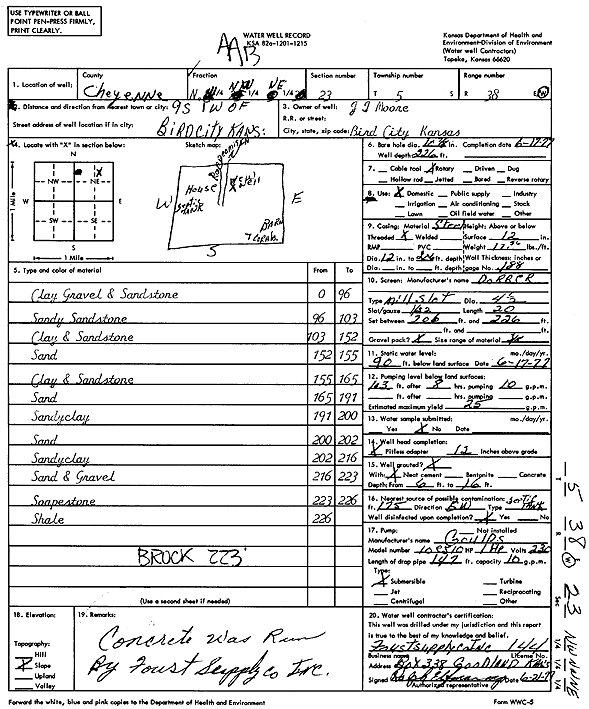 USE TYPEWRITER OR BALL
POINT PEN-PRESS FIRMLY,
PRINT CLEARLY.
AAB
WATER WELL RECORD
KSA 82a-1201-1215
Kansas Department of Health and
Environment-Division of Environment
(Water well Contractors)
Topeka, Kansas 66620
1. Location of well: County Cheyenne Fraction N 1/4 NW 1/4 NE 1/4 Section number 23 Township number T 5 S Range number R 38 E W
2. Distance and direction from nearest town or city: 9S 1W OF
Street address of well location if in city: BIRDCITY KANS.
3. Owner of well: J J Moore
R.R. or street:
City, state, zip code: Bird City Kansas
4. Locate with "X" in section below:
Sketch map:
N
NW NE
W E
SW SE
S
1 Mile
1 Mile
House
Well
Septic TANK
BARN
CORRAL
W E
S
6. Bore hole dia. in. Completion date 6-17-77
Well depth 226 ft.
7. Cable tool X Rotary Driven Dug
Hollow rod Jetted Bored Reverse rotary
8. Use: X Domestic Public supply Industry
Irrigation Air conditioning Stock
Lawn Oil field water Other
9. Casing: Material Steel Height: Above or below
Threaded X Welded Surface 12 in.
RMP PVC Weight lbs./ft.
Dia. 12 in. to ft. depth Wall Thickness: inches or
Dia. in. to ft. depth gage No. .188
10. Screen: Manufacturer's name
Type Mill slot Dia.
Slot/gauze Length 20
Set between 206 ft. and 226 ft.
ft. and ft.
Gravel pack? X Size range of material
11. Static water level: mo./day/yr.
90 ft. below land surface Date 6-17-77
12. Pumping level below land surfaces:
163 ft. after 8 hrs. pumping 10 g.p.m.
ft. after hrs. pumping g.p.m.
Estimated maximum yield 25 g.p.m.
13. Water sample submitted: mo./day/yr.
Yes X No Date
14. Well head completion:
X Pitless adapter 12 Inches above grade
15. Well grouted? X
With: X Neat cement Bentonite Concrete
Depth: From 6 ft. to 16 ft.
16. Nearest source of possible contamination: Septic
ft. 175 Direction SW Type TANK
Well disinfected upon completion? X Yes No
17. Pump: Not installed
Manufacturer's name Goulds
Model number HP 1 HP Volts 230
Length of drop pipe 147 ft. capacity 10 g.p.m.
Type:
X Submersible Turbine
Jet Reciprocating
Centrifugal Other
5. Type and color of material From To
Clay Gravel & Sandstone 0 96
Sandy Sandstone 96 103
Clay & Sandstone 103 152
Sand 152 155
Clay & Sandstone 155 165
Sand 165 191
Sandyclay 191 200
Sand 200 202
Sandyclay 202 216
Sand & Gravel 216 223
Soapstone 223 226
Shale 226
BROCK 223'
(Use a second sheet if needed)
18. Elevation:
Topography:
Hill
X Slope
Upland
Valley
19. Remarks:
Concrete Was Run
By Foust Supply Co Inc.
20. Water well contractor's certification:
This well was drilled under my jurisdiction and this report
is true to the best of my knowledge and belief.
Foust Supply Co Inc 144
Business name License No.
Address Box 338 Goodland Kans
Signed Date 6-21-77
Authorized representative
Forward the white, blue and pink copies to the Department of Health and Environment
Form WWC-5
T 5 R 38 W Sec 23 1/4 1/4 1/4